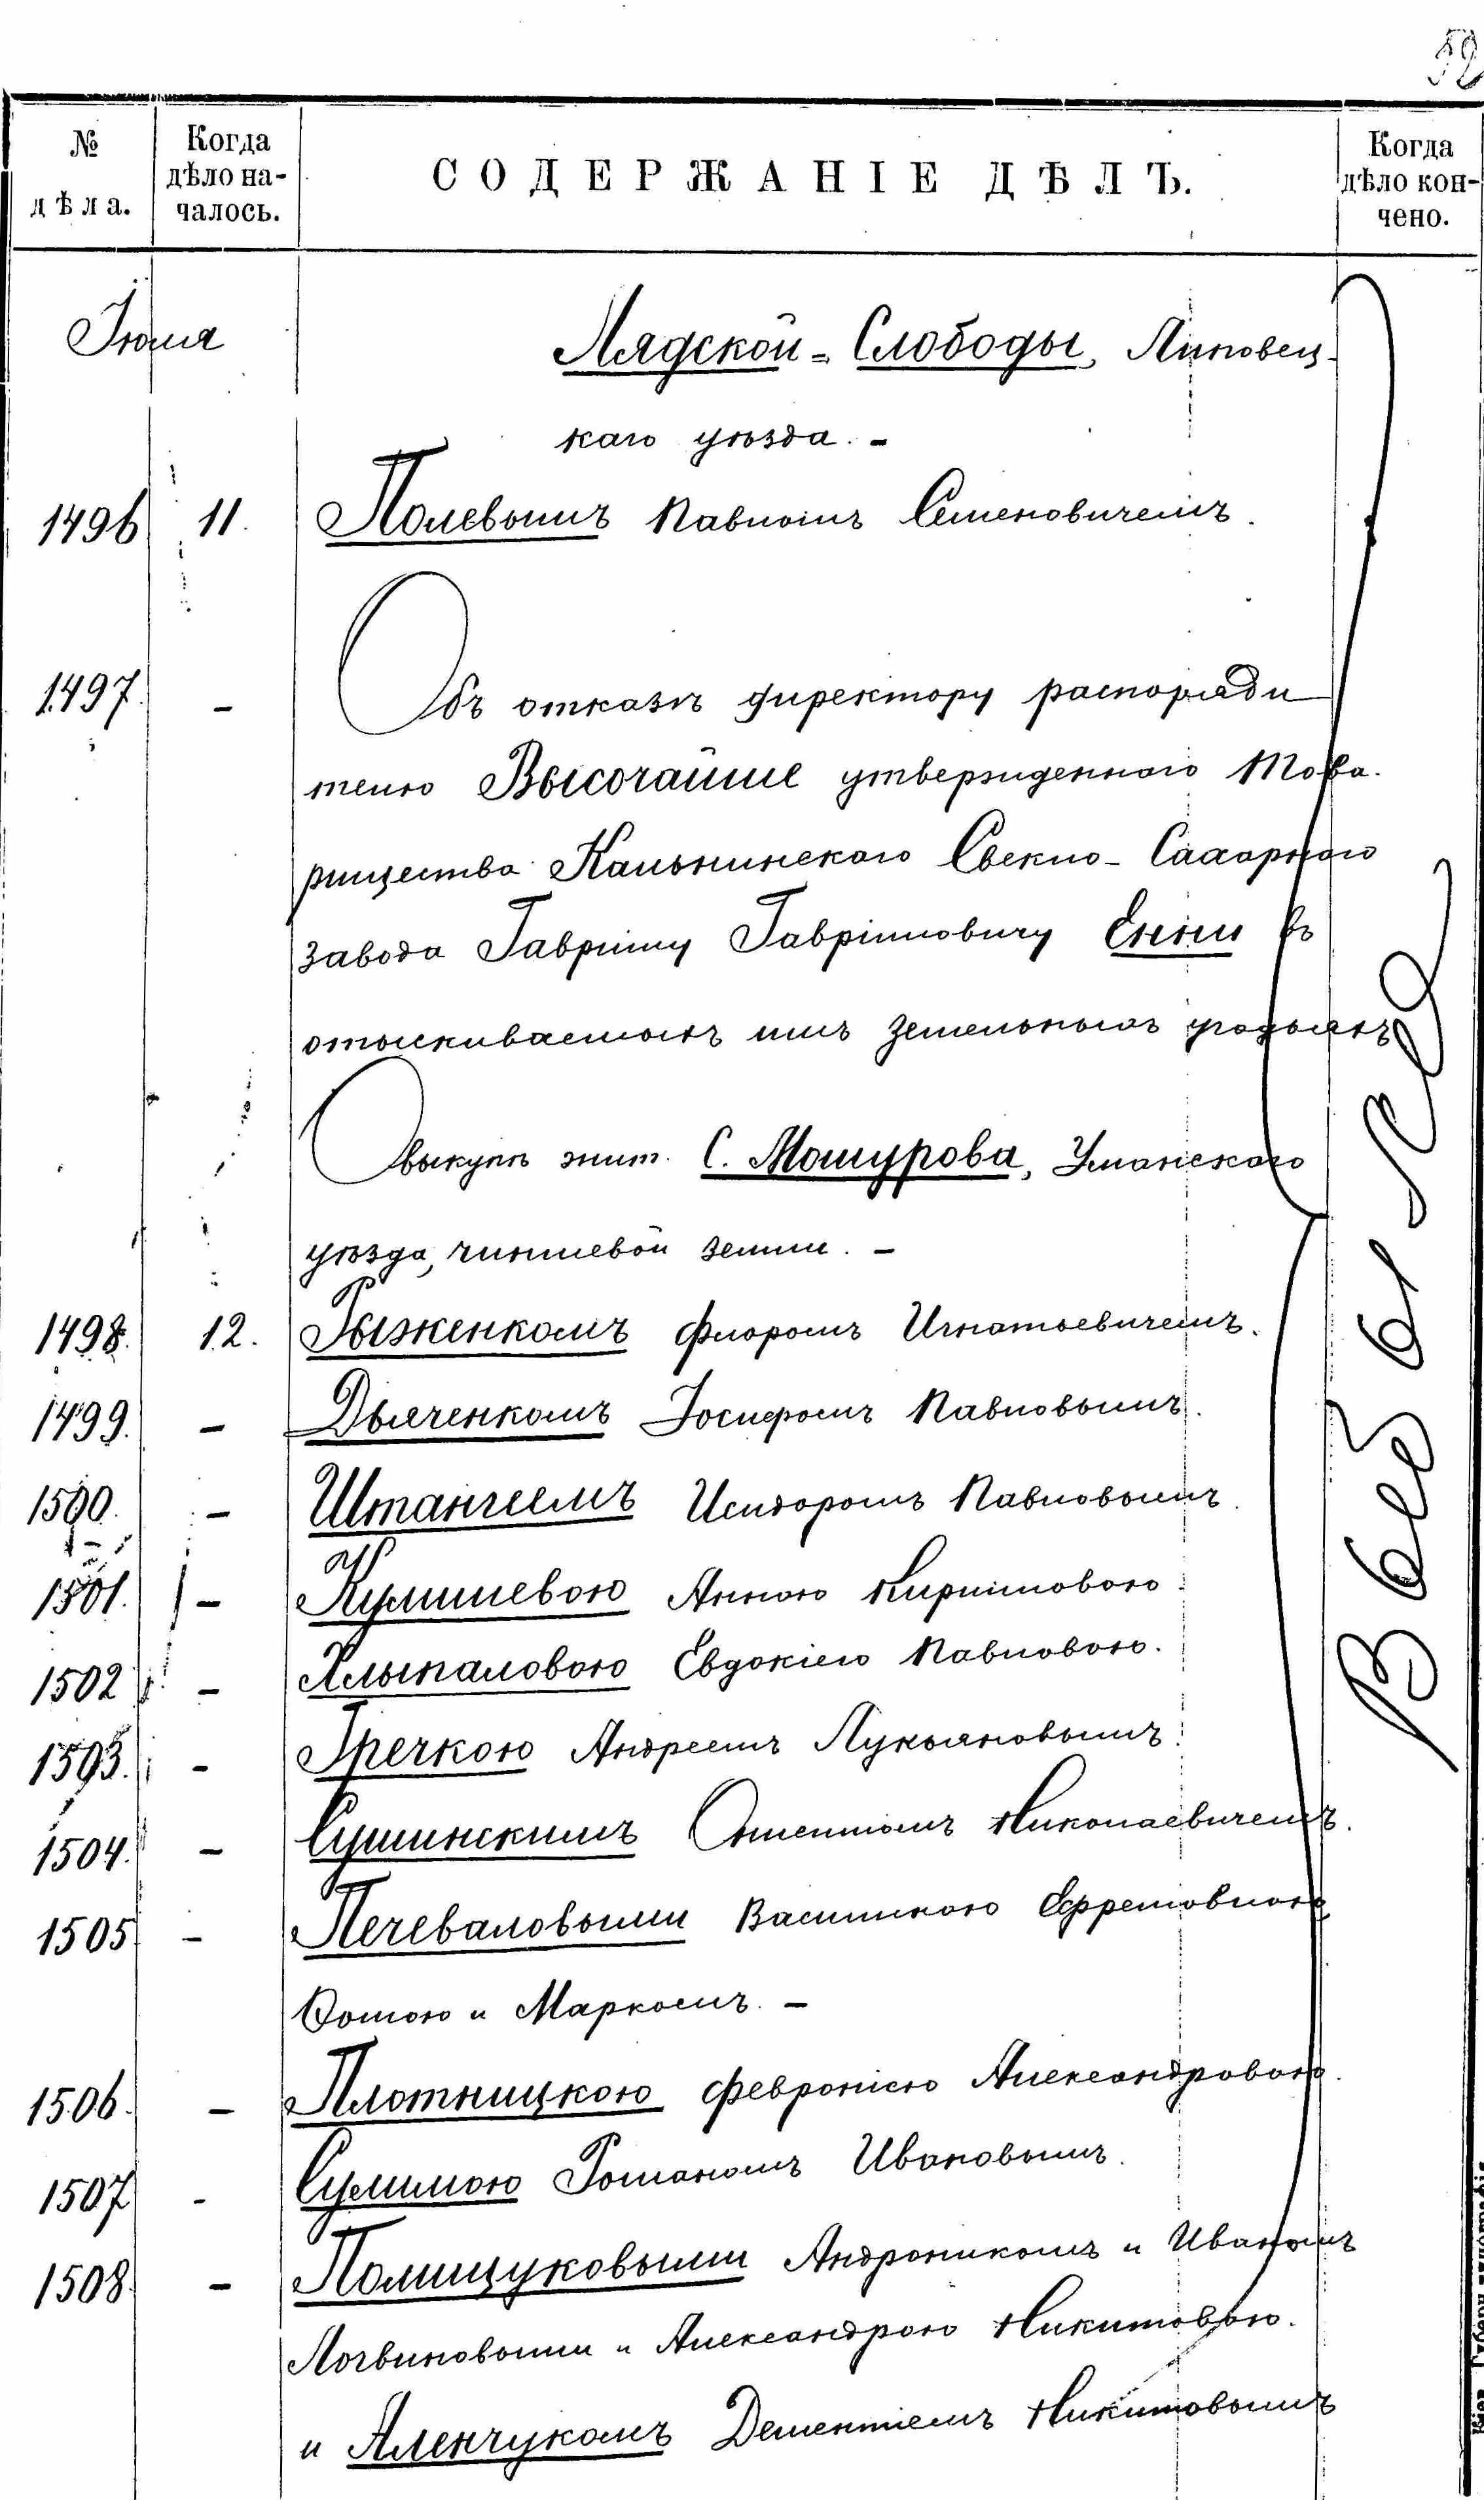 59
№ дѣла.
Когда дѣло на-чалось.
СОДЕРЖАНІЕ ДѢЛЪ.
Когда дѣло кон-чено.
Іюля
Лядской - Слободы, Липовец-
каго уѣзда. -
1496 11. Полевымъ Павломъ Семеновичемъ.
1497. - Объ отказѣ директору распоряди
телю Высочайше утвержденнаго Това-
рищества Кальникскаго Свекло-Сахарнаго
завода Гавріилу Гавріиловичу Енни въ
отыскиваемыхъ имъ земельныхъ угодьяхъ
О выкупѣ жит. С. Мошурова, Уманскаго
уѣзда, чиншевой земли. -
1498. 12. Рыженкомъ Флоромъ Игнатьевичемъ.
1499. - Дьяченкомъ Іосифомъ Павловымъ.
1500. - Штангеемъ Исидоромъ Павловымъ.
1501. - Кулишевою Анною Кириловою.
1502 - Клыпаловою Евдокіею Павловою.
1503. - Гречкою Андреемъ Лукьяновымъ.
1504. - Сушинскимъ Климентомъ Николаевичемъ.
1505 - Печеваловыми Василиною Ефремовною
Фомою и Маркомъ. -
1506. - Плотницкою Февроніею Александровою.
1507 - Сулимою Романомъ Ивановымъ.
1508 - Полищуковыми Андроникомъ и Иваномъ
Логвиновыми и Александрою Никитовою.
и Аленчукомъ Дементіемъ Никитовымъ